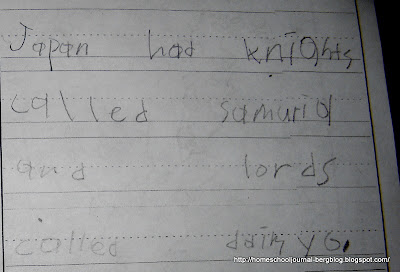 Japan had knights
called samuria
and lords
called daimyo.
http://homeschooljournal-bergblog.blogspot.com/